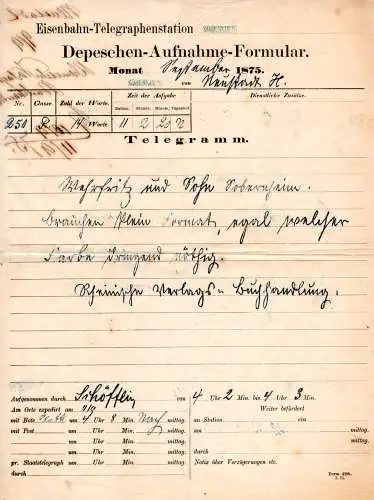 Eisenbahn-Telegraphenstation
Depeschen-Aufnahme-Formular.
Monat September 1875.
von Neustadt H.
Nr. Classe Zahl der Worte. Zeit der Aufgabe Dienstliche Zusätze.
Datum. Stunde. Minute. Tageszeit
250 14 Worte 11 2 20
Telegramm.
Wehrfritz und Sohn Sobernheim.
Brauchen Klein Format, egal welcher
Farbe dringend nöthig.
Rheinische Verlags-Buchhandlung.
Aufgenommen durch Schöfflin von 4 Uhr 2 Min. bis 4 Uhr 3 Min.
Am Orte expedirt am 11/9 Weiter befördert
mit Bote um 4 Uhr 8 Min. Nach mittag. an Station
mit Post Uhr Min. mittag. um Uhr Min. mittag.
Uhr Min. mittag. durch
pr. Staatstelegraph Uhr Min. mittag. Notiz über Verzögerungen etc.
Form 498.